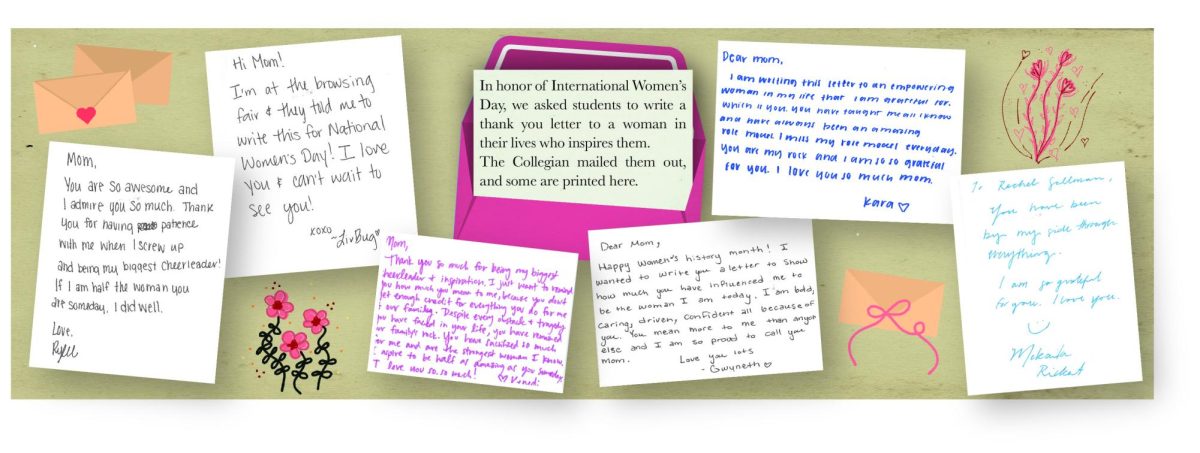 Hi Mom!
I'm at the browsing
fair & they told me to
write this for National
Women's Day! I love
you & can't wait to
see you!
xoxo
~LivBug
Mom,
You are so awesome and
I admire you so much. Thank
you for having patience
with me when I screw up
and being my biggest cheerleader!
If I am half the woman you
are someday, I did well.
Love,
In honor of International Women's
Day, we asked students to write a
thank you letter to a woman in
their lives who inspires them.
The Collegian mailed them out,
and some are printed here.
Mom,
Thank you so much for being my biggest
cheerleader & inspiration. I just want to remind
you how much you mean to me, because you don't
get enough credit for everything you do for me
& our family. Despite every obstacle & tragedy
you have faced in your life, you have remained
our family's rock. You have sacrificed so much
for me and are the strongest woman I know.
I aspire to be half as amazing as you someday.
I love you so, so much!
Dear Mom,
Happy women's history month! I
wanted to write you a letter to show
how much you have influenced me to
be the woman I am today. I am bold,
caring, driven, confident all because of
you. You mean more to me than anyon
else and I am so proud to call you
mom.
Love you lots
- Gwyneth
Dear mom,
I am writing this letter to an empowering
woman in my life that I am grateful for.
which is you. You have taught me all I know
and have always been an amazing
role model. I miss my role model everyday.
You are my rock and I am so so grateful
for you. I love you so much mom.
Kara
To Rachel Gellman,
You have been
by my side through
everything.
I am so grateful
for you. I love you.
Mikaila